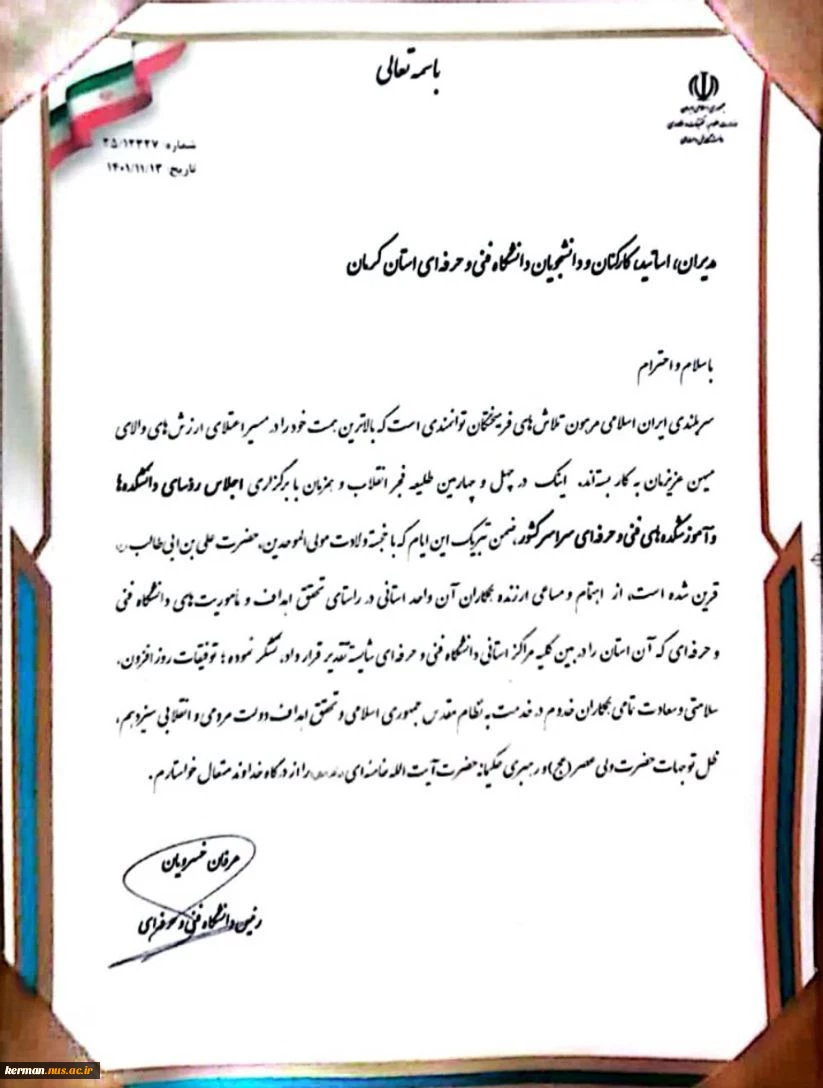 باسمه تعالی
جمهوری اسلامی ایران
وزارت علوم، تحقیقات و فناوری
دانشگاه فنی و حرفه‌ای
شماره: ۲۵/۱۲۳۲۷
تاریخ: ۱۴۰۱/۱۱/۱۳
مدیران، اساتید، کارکنان و دانشجویان دانشگاه فنی و حرفه ای استان کرمان
با سلام و احترام
سربلندی ایران اسلامی مرهون تلاش های فرهیختگان توانمندی است که بالاترین همت خود را در مسیر اعتلای ارزش های والای
میهن عزیزمان به کار بسته‌اند. اینک در چهل و چهارمین طلیعه فجر انقلاب و همزمان با برگزاری اجلاس رؤسای دانشکده‌ها
و آموزشکده‌های فنی و حرفه‌ای سراسر کشور، ضمن تبریک این ایام که با خجسته ولادت مولی الموحدین، حضرت علی بن ابی طالب (ع)
قرین شده است، از اهتمام و مساعی ارزنده همکاران آن واحد استانی در راستای تحقق اهداف و مأموریت های دانشگاه فنی
و حرفه‌ای که آن استان را در بین کلیه مراکز استانی دانشگاه فنی و حرفه‌ای شایسته تقدیر قرار داد، تشکر نموده؛ توفیقات روز افزون،
سلامتی و سعادت تمامی همکاران خدوم در خدمت به نظام مقدس جمهوری اسلامی و تحقق اهداف دولت مردمی و انقلابی سیزدهم،
ظل توجهات حضرت ولی عصر (عج) و رهبری حکیمانه حضرت آیت الله خامنه‌ای را از درگاه خداوند متعال خواستارم.
عرفان خسرویان
رئیس دانشگاه فنی و حرفه‌ای
kerman.nus.ac.ir